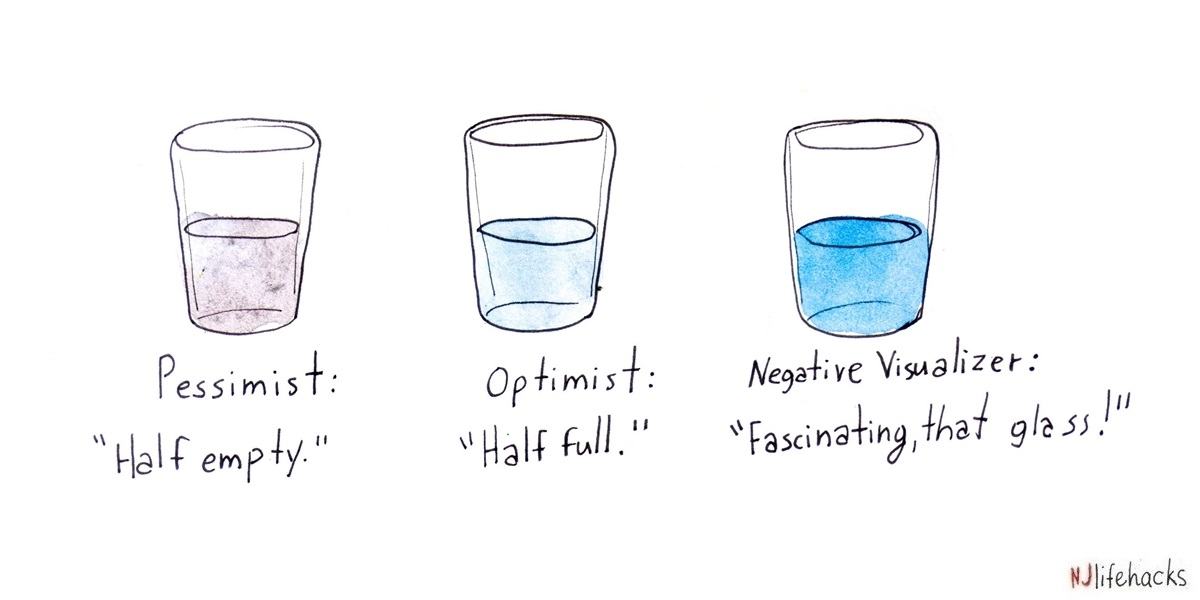 Pessimist:
"Half empty."
Optimist:
"Half full."
Negative Visualizer:
"Fascinating, that glass!"
NJlifehacks